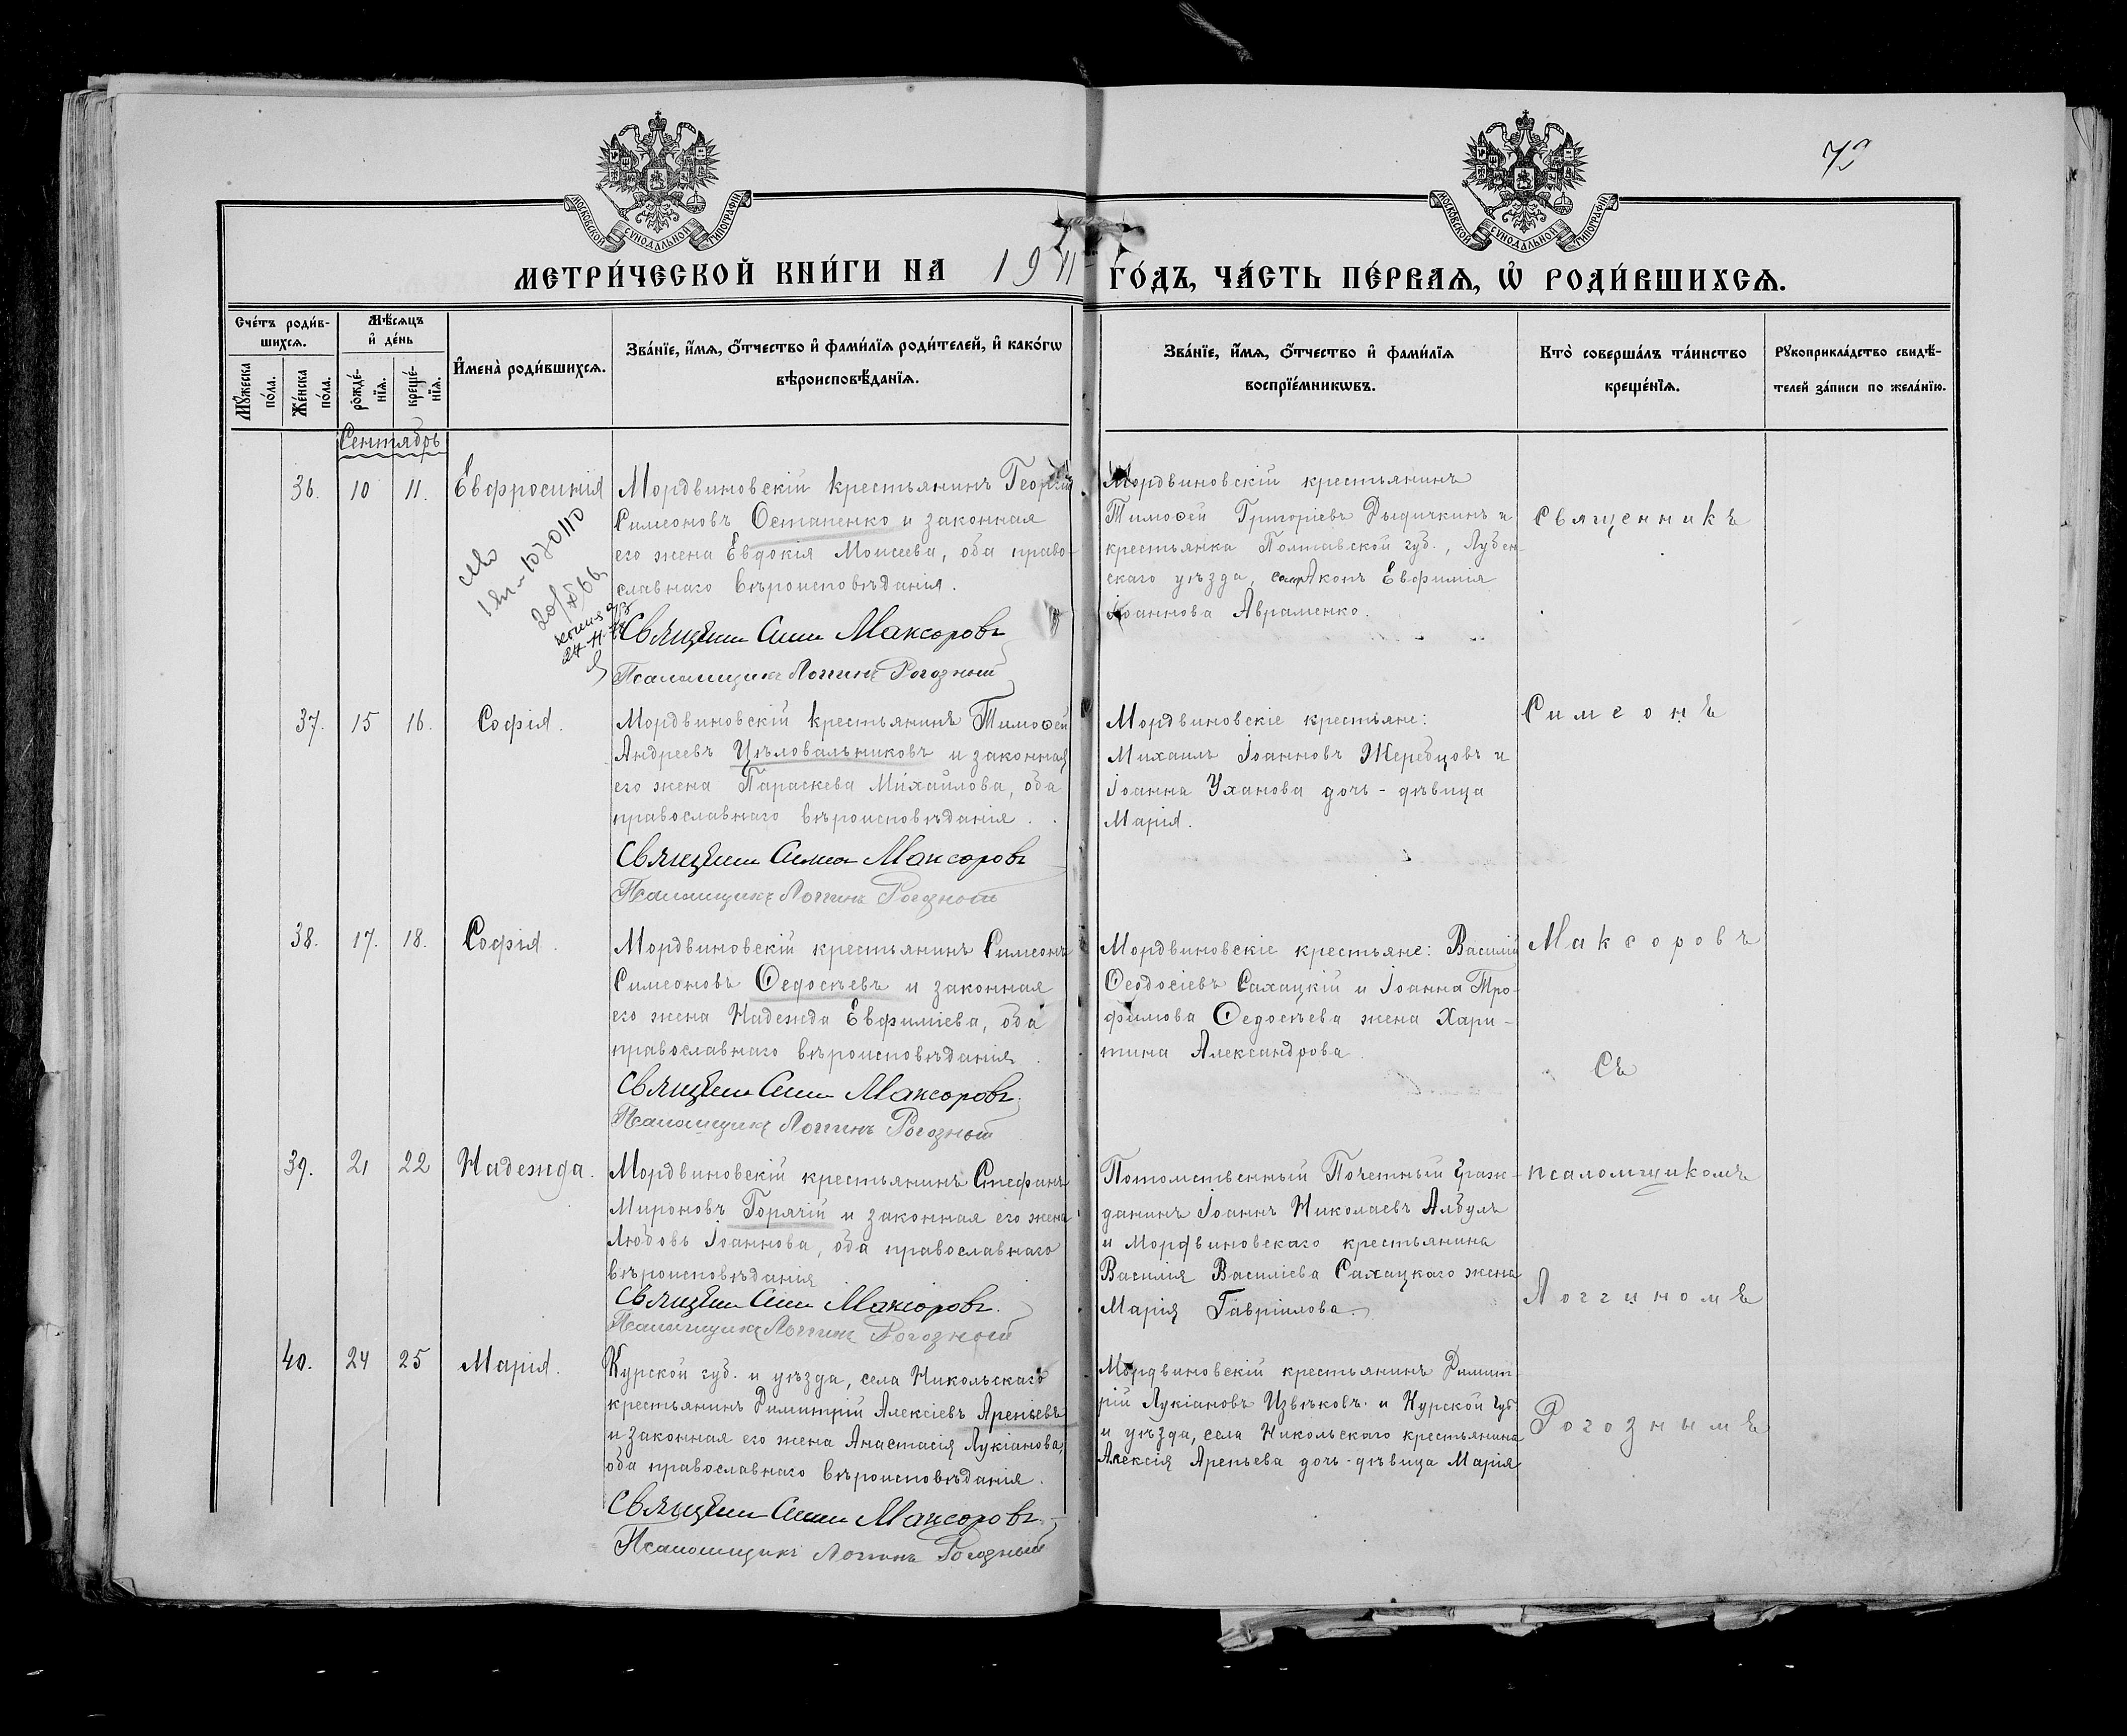 МОСКОВСКОЙ СѴНОДАЛЬНОЙ ТИПОГРАФІИ
МОСКОВСКОЙ СѴНОДАЛЬНОЙ ТИПОГРАФІИ
МЕТРИ́ЧЕСКОЙ КНИ́ГИ НА 1911 ГО́ДЪ, ЧА́СТЬ ПЕ́РВАѦ, Ѡ҆ РОДИ́ВШИХСѦ.
Сче́тъ роди́в-
шихсѧ.
Мꙋ́жеска
по́ла.
Же́нска
по́ла.
Мѣ́сѧцъ
и҆ де́нь
рожде́-
нїѧ.
креще́-
нїѧ.
И҆мена̀ роди́вшихсѧ.
Зва́нїе, и҆́мѧ, ѻ҆́тчество и҆ фами́лїѧ роди́телей, и҆ како́гѡ
вѣроисповѣ́данїѧ.
Зва́нїе, и҆́мѧ, ѻ҆́тчество и҆ фами́лїѧ
воспрїе́мникѡвъ.
Кто̀ соверша́лъ та́инство
креще́нїѧ.
Рꙋкоприкла́дство свидѣ́-
телей за́писи по жела́нїю.
Сентябрь
36. 10 11. Евфросинія
Мордвиновскій крестьянинъ Георгій
Симеоновъ Остапенко и законная
его жена Евдокія Моисеева, оба право-
славнаго вѣроисповѣданія.
Священ Симе Максоровъ
Псаломщикъ Логгинъ Рогозный
Мордвиновскій крестьянинъ
Тимоѳей Григоріевъ Дыдичкинъ и
крестьянка Полтавской губ., Лубен-
скаго уѣзда, Евфимія
Іоаннова Авраменко.
37. 15 16. Софія.
Мордвиновскій крестьянинъ Тимоѳей
Андреевъ Цѣловальниковъ и законная
его жена Параскева Михайлова, оба
православнаго вѣроисповѣданія.
Священ Симе Максоровъ
Псаломщикъ Логгинъ Рогозный
Мордвиновскіе крестьяне:
Михаилъ Іоанновъ Жеребцовъ и
Іоанна Уханова дочь-дѣвица
Марія.
38. 17. 18. Софія.
Мордвиновскій крестьянинъ Симеонъ
Симеоновъ Ѳедосѣевъ и законная
его жена Надежда Евфиміева, оба
православнаго вѣроисповѣданія.
Священ Симе Максоровъ
Псаломщикъ Логгинъ Рогозный
Мордвиновскіе крестьяне: Василій
Ѳеодосіевъ Сахацкій и Іоанна Тро-
фимова Ѳедосѣева жена Хари-
тина Александрова.
39. 21 22 Надежда.
Мордвиновскій крестьянинъ Стефанъ
Мироновъ Горячій и законная его жена
Любовь Іоаннова, оба православнаго
вѣроисповѣданія
Священ Симе Максоровъ.
Псаломщикъ Логгинъ Рогозный
Потомственный Почетный Граж-
данинъ Іоаннъ Николаевъ Албулъ
и Мордвиновскаго крестьянина
Василія Василіева Сахацкаго жена
Марія Гавріилова.
40. 24 25 Марія.
Курской губ. и уѣзда, села Никольскаго
крестьянинъ Димитрій Алексіевъ Арепьевъ
и законная его жена Анастасія Лукіанова,
оба православнаго вѣроисповѣданія.
Священ Симе Максоровъ.
Псаломщикъ Логгинъ Рогозный
Мордвиновскій крестьянинъ Димит-
рій Лукіановъ Извѣковъ и Курской губ.
и уѣзда, села Никольскаго крестьянина
Алексія Арепьева дочь-дѣвица Марія
Священникъ
Симеонъ
Максоровъ
съ
псаломщикомъ
Логгиномъ
Рогознымъ